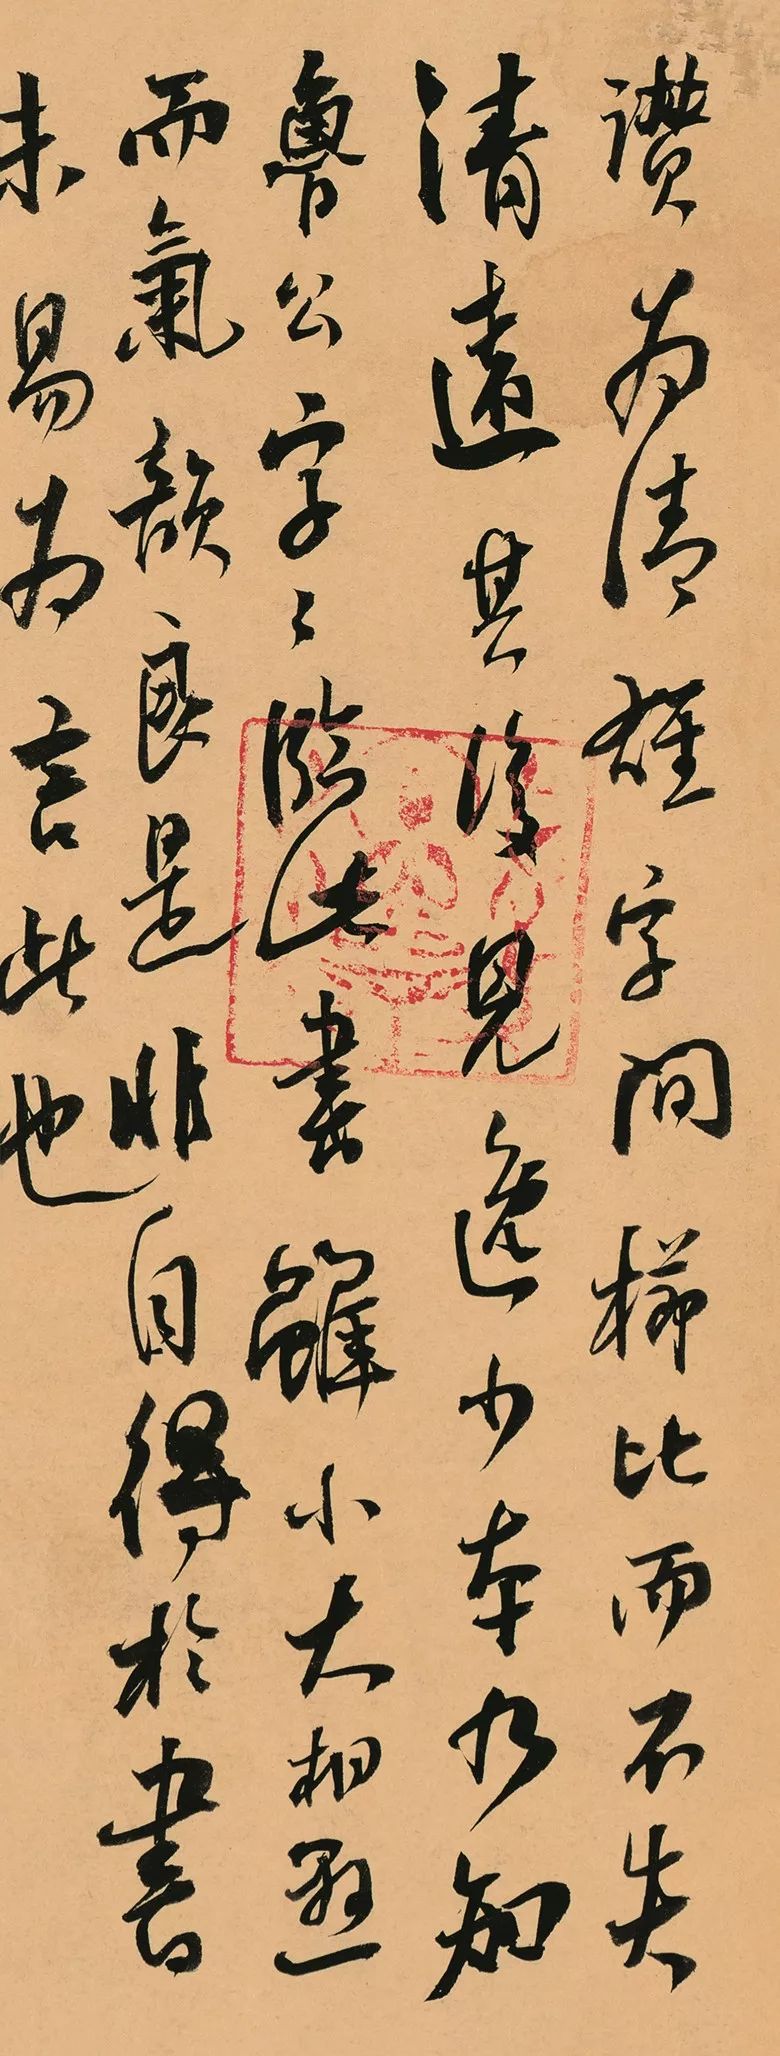 讃為清雄字間櫛比而不失
清遠其後見逸少本乃知
魯公字〻臨此書雖小大相懸
而氣韻良是非自得於書
未易為言此也